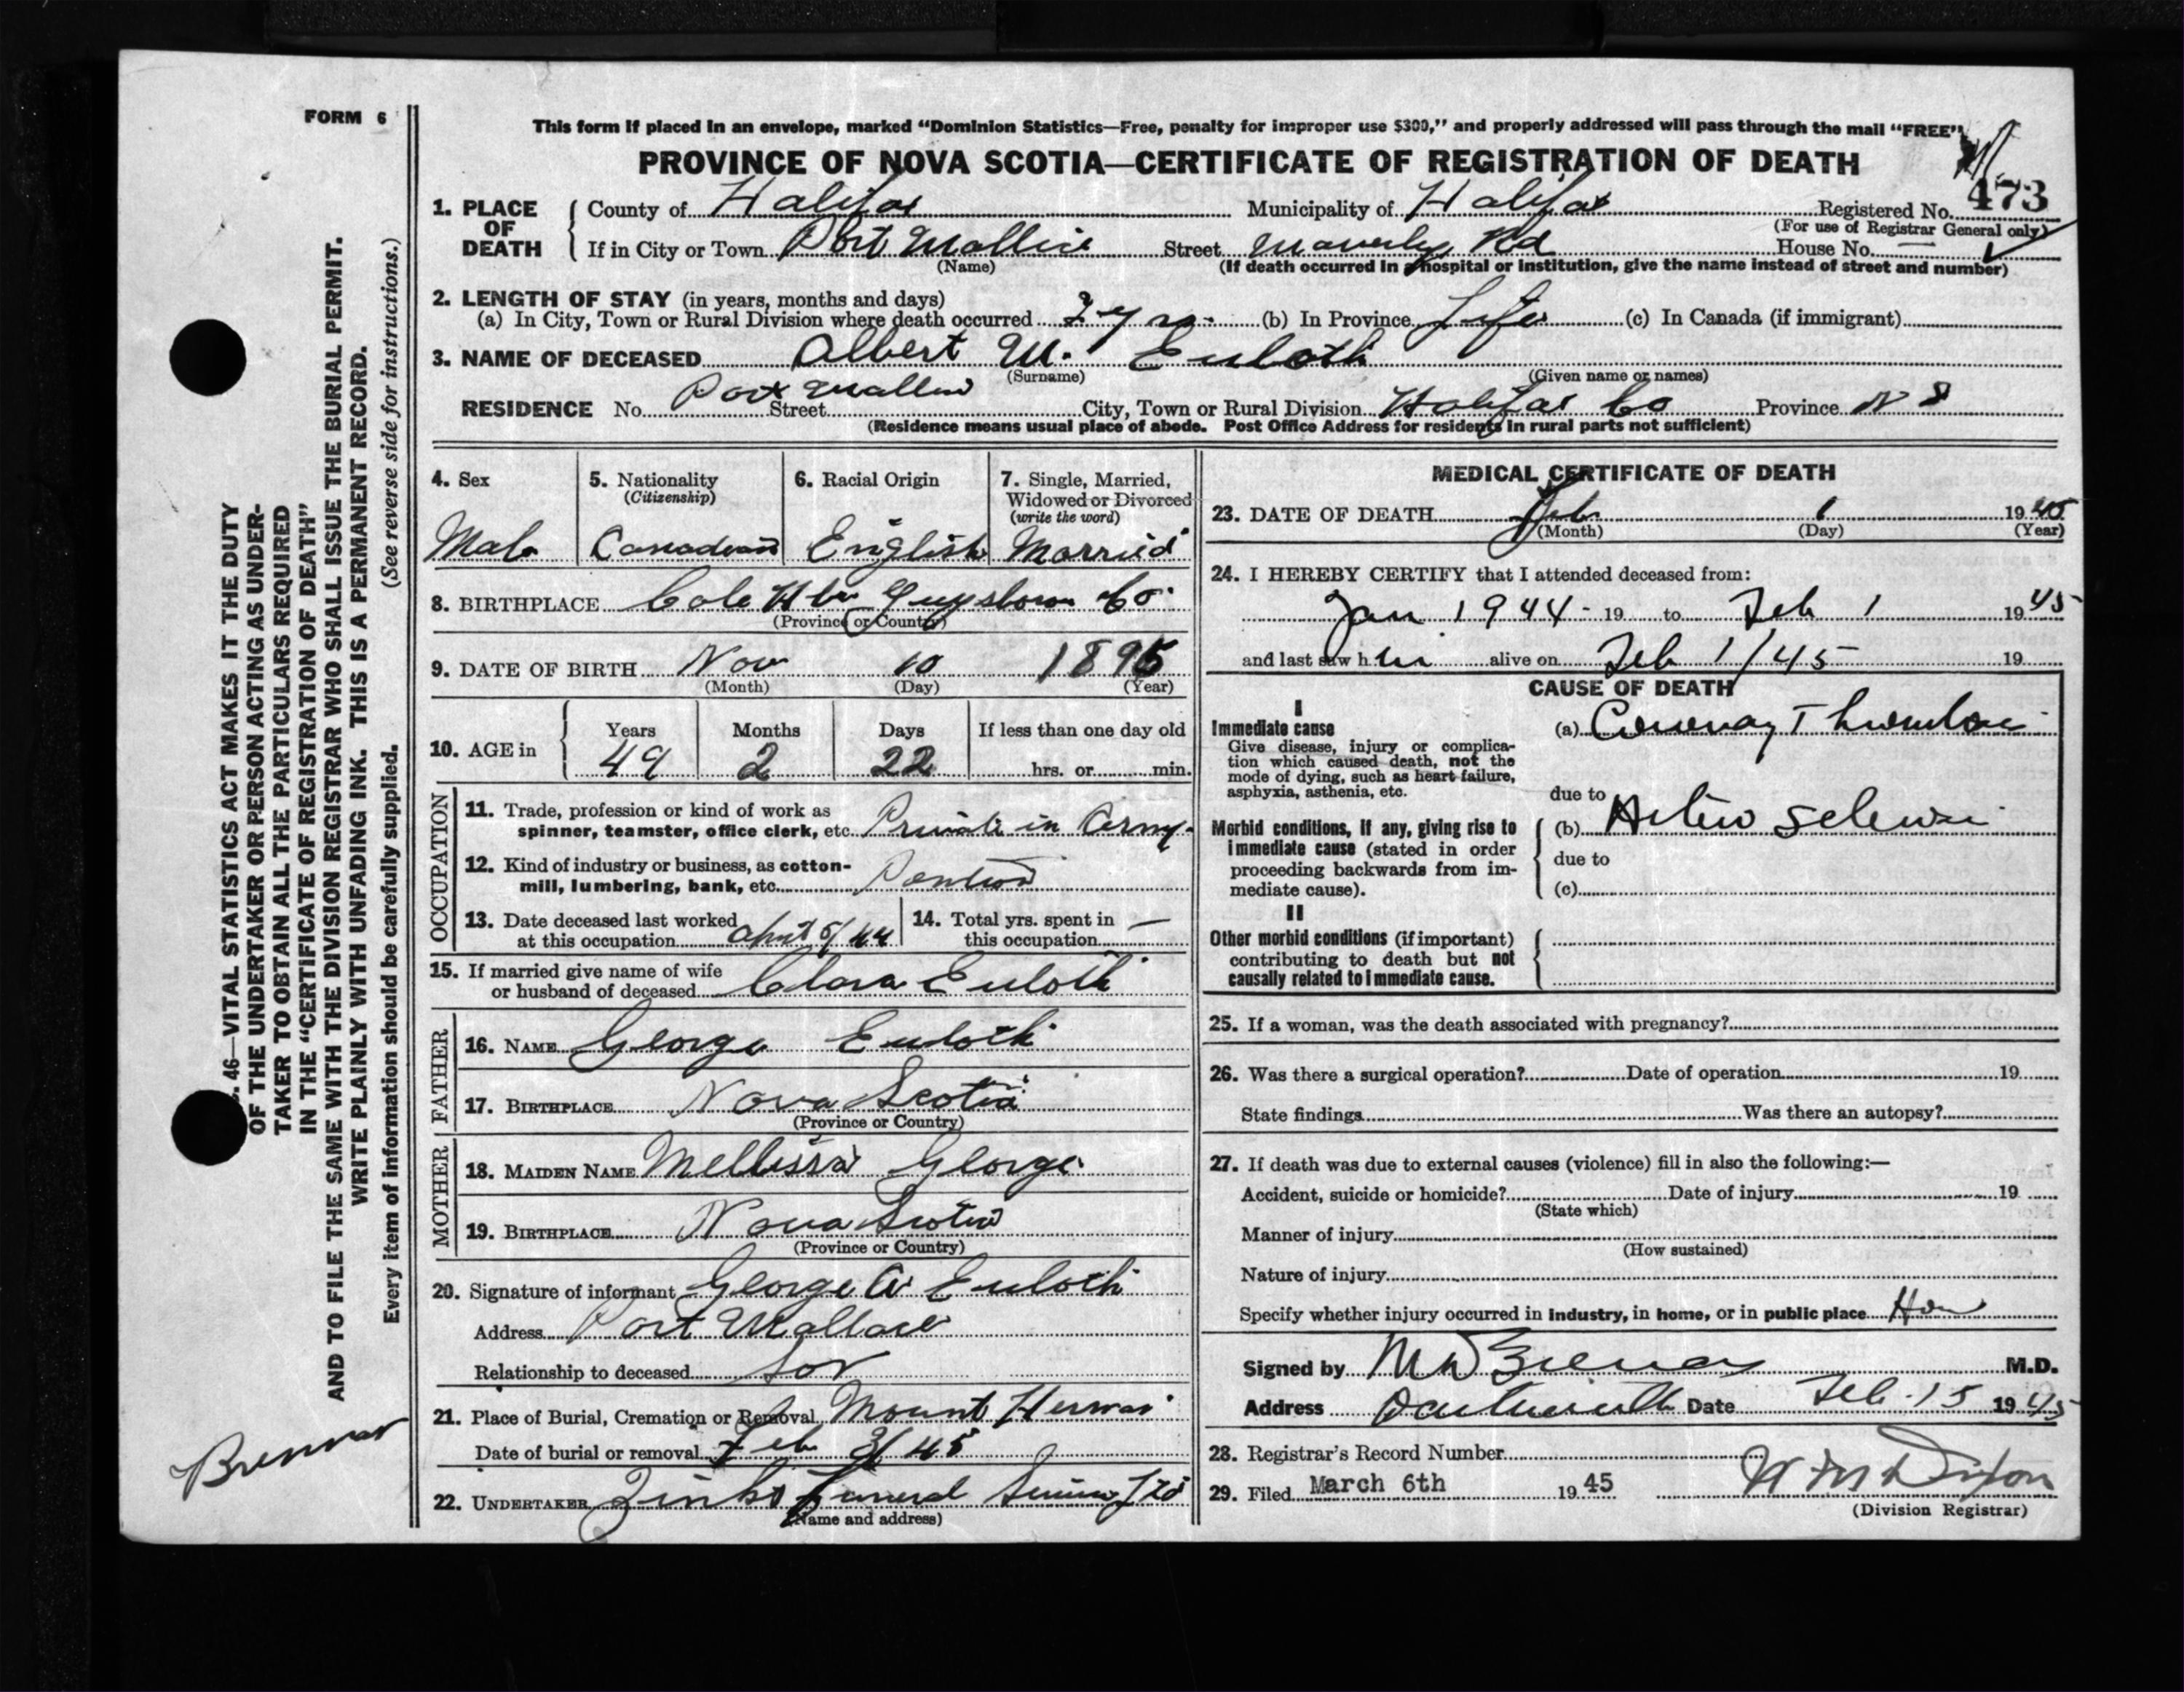 FORM 6
This form if placed in an envelope, marked "Dominion Statistics—Free, penalty for improper use $300," and properly addressed will pass through the mail "FREE"
PROVINCE OF NOVA SCOTIA—CERTIFICATE OF REGISTRATION OF DEATH
473
1. PLACE OF DEATH { County of Halifax Municipality of Halifax Registered No.
(For use of Registrar General only)
If in City or Town Port Wallace Street Waverley Rd House No. —
(Name) (If death occurred in a hospital or institution, give the name instead of street and number)
2. LENGTH OF STAY (in years, months and days)
(a) In City, Town or Rural Division where death occurred yrs. (b) In Province Life (c) In Canada (if immigrant)
3. NAME OF DECEASED Albert W. Euloth
(Surname) (Given name or names)
RESIDENCE No. Port Wallace Street City, Town or Rural Division Halifax Co Province N S
(Residence means usual place of abode. Post Office Address for residents in rural parts not sufficient)
4. Sex 5. Nationality (Citizenship) 6. Racial Origin 7. Single, Married, Widowed or Divorced (write the word)
Male Canadian English Married
8. BIRTHPLACE Cole Hbr Guysboro Co.
(Province or Country)
9. DATE OF BIRTH Nov 10 1895
(Month) (Day) (Year)
10. AGE in { Years Months Days If less than one day old
49 2 22 hrs. or min.
OCCUPATION
11. Trade, profession or kind of work as
spinner, teamster, office clerk, etc. Private in Army.
12. Kind of industry or business, as cotton-
mill, lumbering, bank, etc.
13. Date deceased last worked
at this occupation 5/44
14. Total yrs. spent in
this occupation —
15. If married give name of wife
or husband of deceased Clara Euloth
FATHER
16. NAME George Euloth
17. BIRTHPLACE Nova Scotia
(Province or Country)
MOTHER
18. MAIDEN NAME Mellissa George
19. BIRTHPLACE Nova Scotia
(Province or Country)
20. Signature of informant George A Euloth
Address Port Wallace
Relationship to deceased Son
21. Place of Burial, Cremation or Removal Mount Hermon
Date of burial or removal Feb 3/45
22. UNDERTAKER Zinks Funeral Service Ltd
(Name and address)
MEDICAL CERTIFICATE OF DEATH
23. DATE OF DEATH Feb 1 1945
(Month) (Day) (Year)
24. I HEREBY CERTIFY that I attended deceased from:
Jan 1944 - 19 to Feb 1 1945
and last saw h im alive on Feb 1/45 19
CAUSE OF DEATH
I
Immediate cause
Give disease, injury or complica-
tion which caused death, not the
mode of dying, such as heart failure,
asphyxia, asthenia, etc.
(a) Coronary Thrombosis
due to
Morbid conditions, if any, giving rise to
immediate cause (stated in order
proceeding backwards from im-
mediate cause).
(b) Arterio Sclerosis
due to
(c)
II
Other morbid conditions (if important)
contributing to death but not
causally related to immediate cause.
25. If a woman, was the death associated with pregnancy?
26. Was there a surgical operation? Date of operation 19
State findings Was there an autopsy?
27. If death was due to external causes (violence) fill in also the following:—
Accident, suicide or homicide? Date of injury 19
(State which)
Manner of injury
(How sustained)
Nature of injury
Specify whether injury occurred in industry, in home, or in public place
Signed by M.D.
Address Dartmouth Date Feb. 15 1945
28. Registrar's Record Number
29. Filed March 6th 1945 W M Dixon
(Division Registrar)
46—VITAL STATISTICS ACT MAKES IT THE DUTY
OF THE UNDERTAKER OR PERSON ACTING AS UNDER-
TAKER TO OBTAIN ALL THE PARTICULARS REQUIRED
IN THE "CERTIFICATE OF REGISTRATION OF DEATH"
AND TO FILE THE SAME WITH THE DIVISION REGISTRAR WHO SHALL ISSUE THE BURIAL PERMIT.
WRITE PLAINLY WITH UNFADING INK. THIS IS A PERMANENT RECORD.
Every item of information should be carefully supplied. (See reverse side for instructions.)